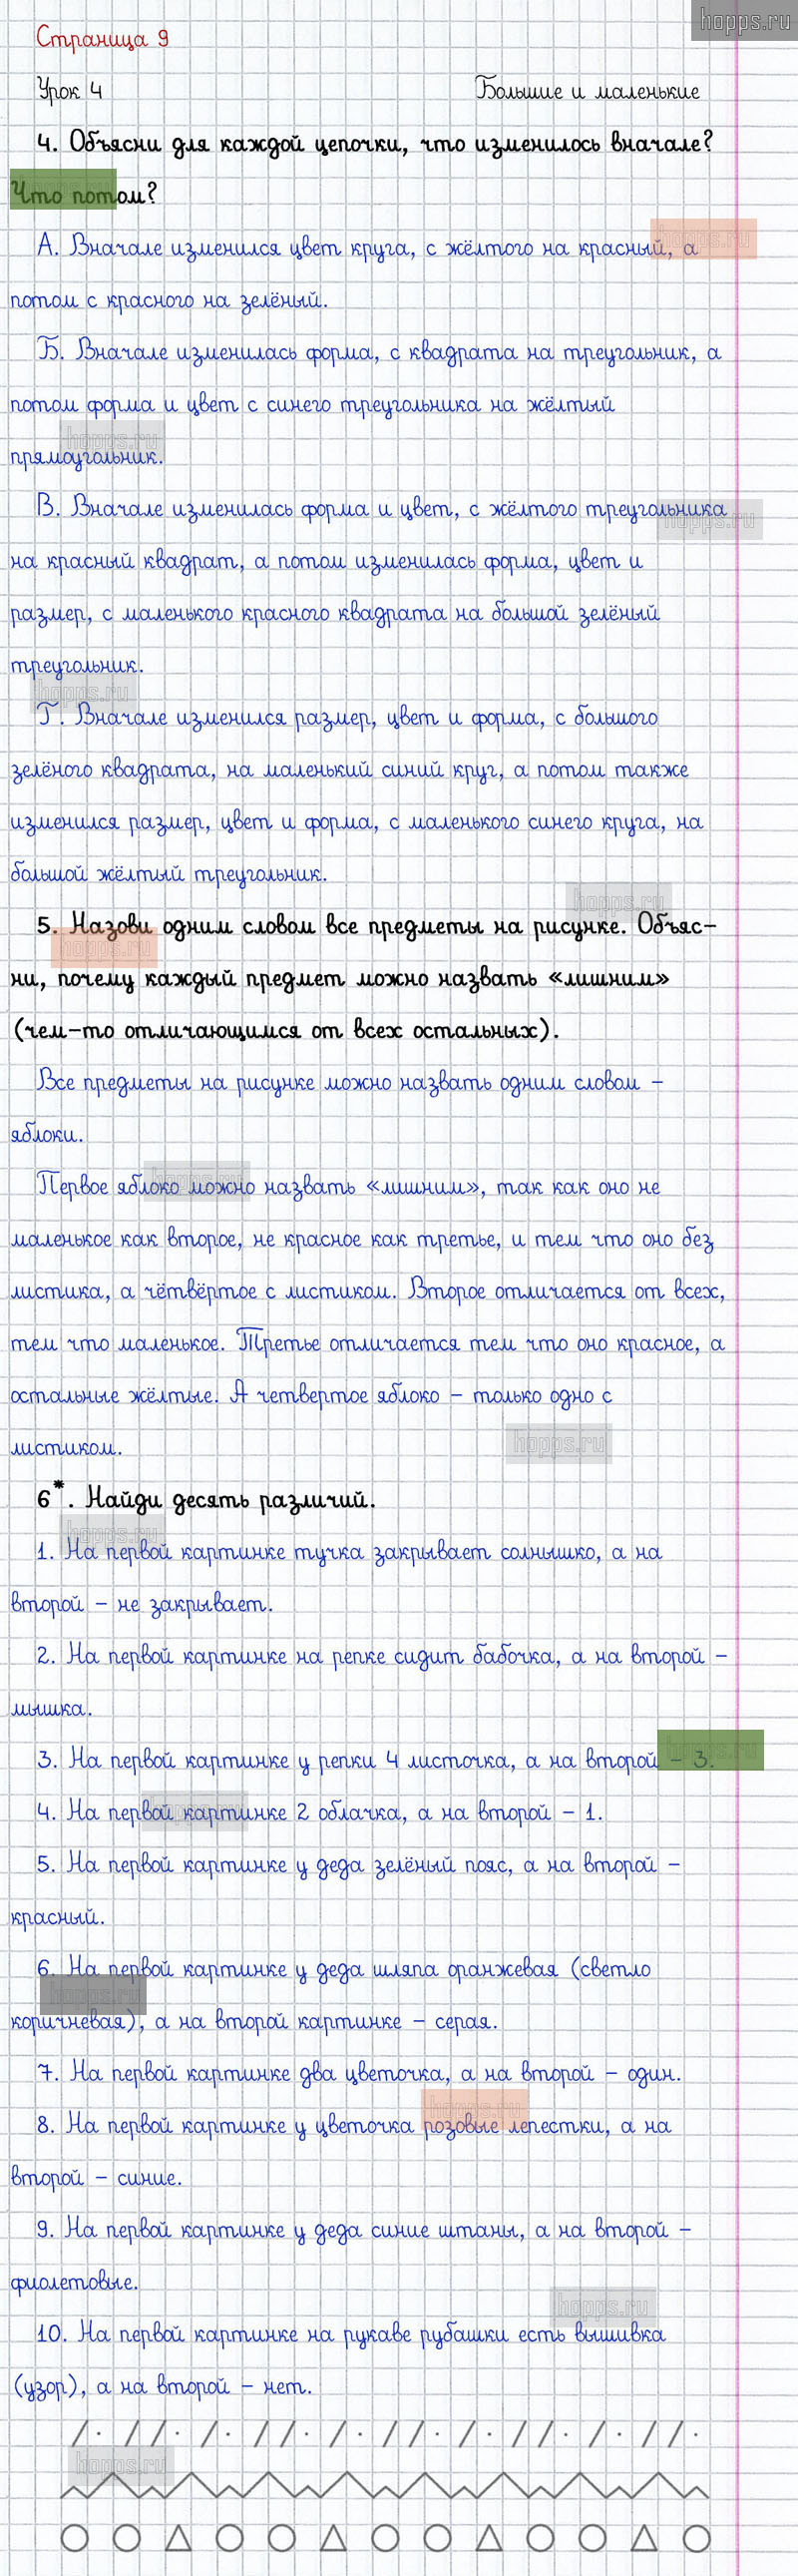 hopps.ru
Страница 9
Урок 4 Большие и маленькие
4. Объясни для каждой цепочки, что изменилось вначале?
Что потом?
hopps.ru
А. Вначале изменился цвет круга, с жёлтого на красный, а
потом с красного на зелёный.
Б. Вначале изменилась форма, с квадрата на треугольник, а
потом форма и цвет с синего треугольника на жёлтый
hopps.ru
прямоугольник.
В. Вначале изменилась форма и цвет, с жёлтого треугольника
hopps.ru
на красный квадрат, а потом изменилась форма, цвет и
размер, с маленького красного квадрата на большой зелёный
треугольник.
hopps.ru
Г. Вначале изменился размер, цвет и форма, с большого
зелёного квадрата, на маленький синий круг, а потом также
изменился размер, цвет и форма, с маленького синего круга, на
большой жёлтый треугольник.
hopps.ru
5. Назови одним словом все предметы на рисунке. Объяс-
hopps.ru
ни, почему каждый предмет можно назвать «лишним»
(чем-то отличающимся от всех остальных).
Все предметы на рисунке можно назвать одним словом -
яблоки.
hopps.ru
Первое яблоко можно назвать «лишним», так как оно не
маленькое как второе, не красное как третье, и тем что оно без
листика, а чётвёртое с листиком. Второе отличается от всех,
тем что маленькое. Третье отличается тем что оно красное, а
остальные жёлтые. А четвертое яблоко - только одно с
hopps.ru
листиком.
6*. Найди десять различий.
hopps.ru
1. На первой картинке тучка закрывает солнышко, а на
второй - не закрывает.
2. На первой картинке на репке сидит бабочка, а на второй -
мышка.
hopps.ru
3. На первой картинке у репки 4 листочка, а на второй - 3.
hopps.ru
4. На первой картинке 2 облачка, а на второй - 1.
5. На первой картинке у деда зелёный пояс, а на второй -
красный.
6. На первой картинке у деда шляпа оранжевая (светло
hopps.ru
коричневая), а на второй картинке - серая.
7. На первой картинке два цветочка, а на второй - один.
hopps.ru
8. На первой картинке у цветочка розовые лепестки, а на
второй - синие.
9. На первой картинке у деда синие штаны, а на второй -
фиолетовые.
hopps.ru
10. На первой картинке на рукаве рубашки есть вышивка
(узор), а на второй - нет.
hopps.ru